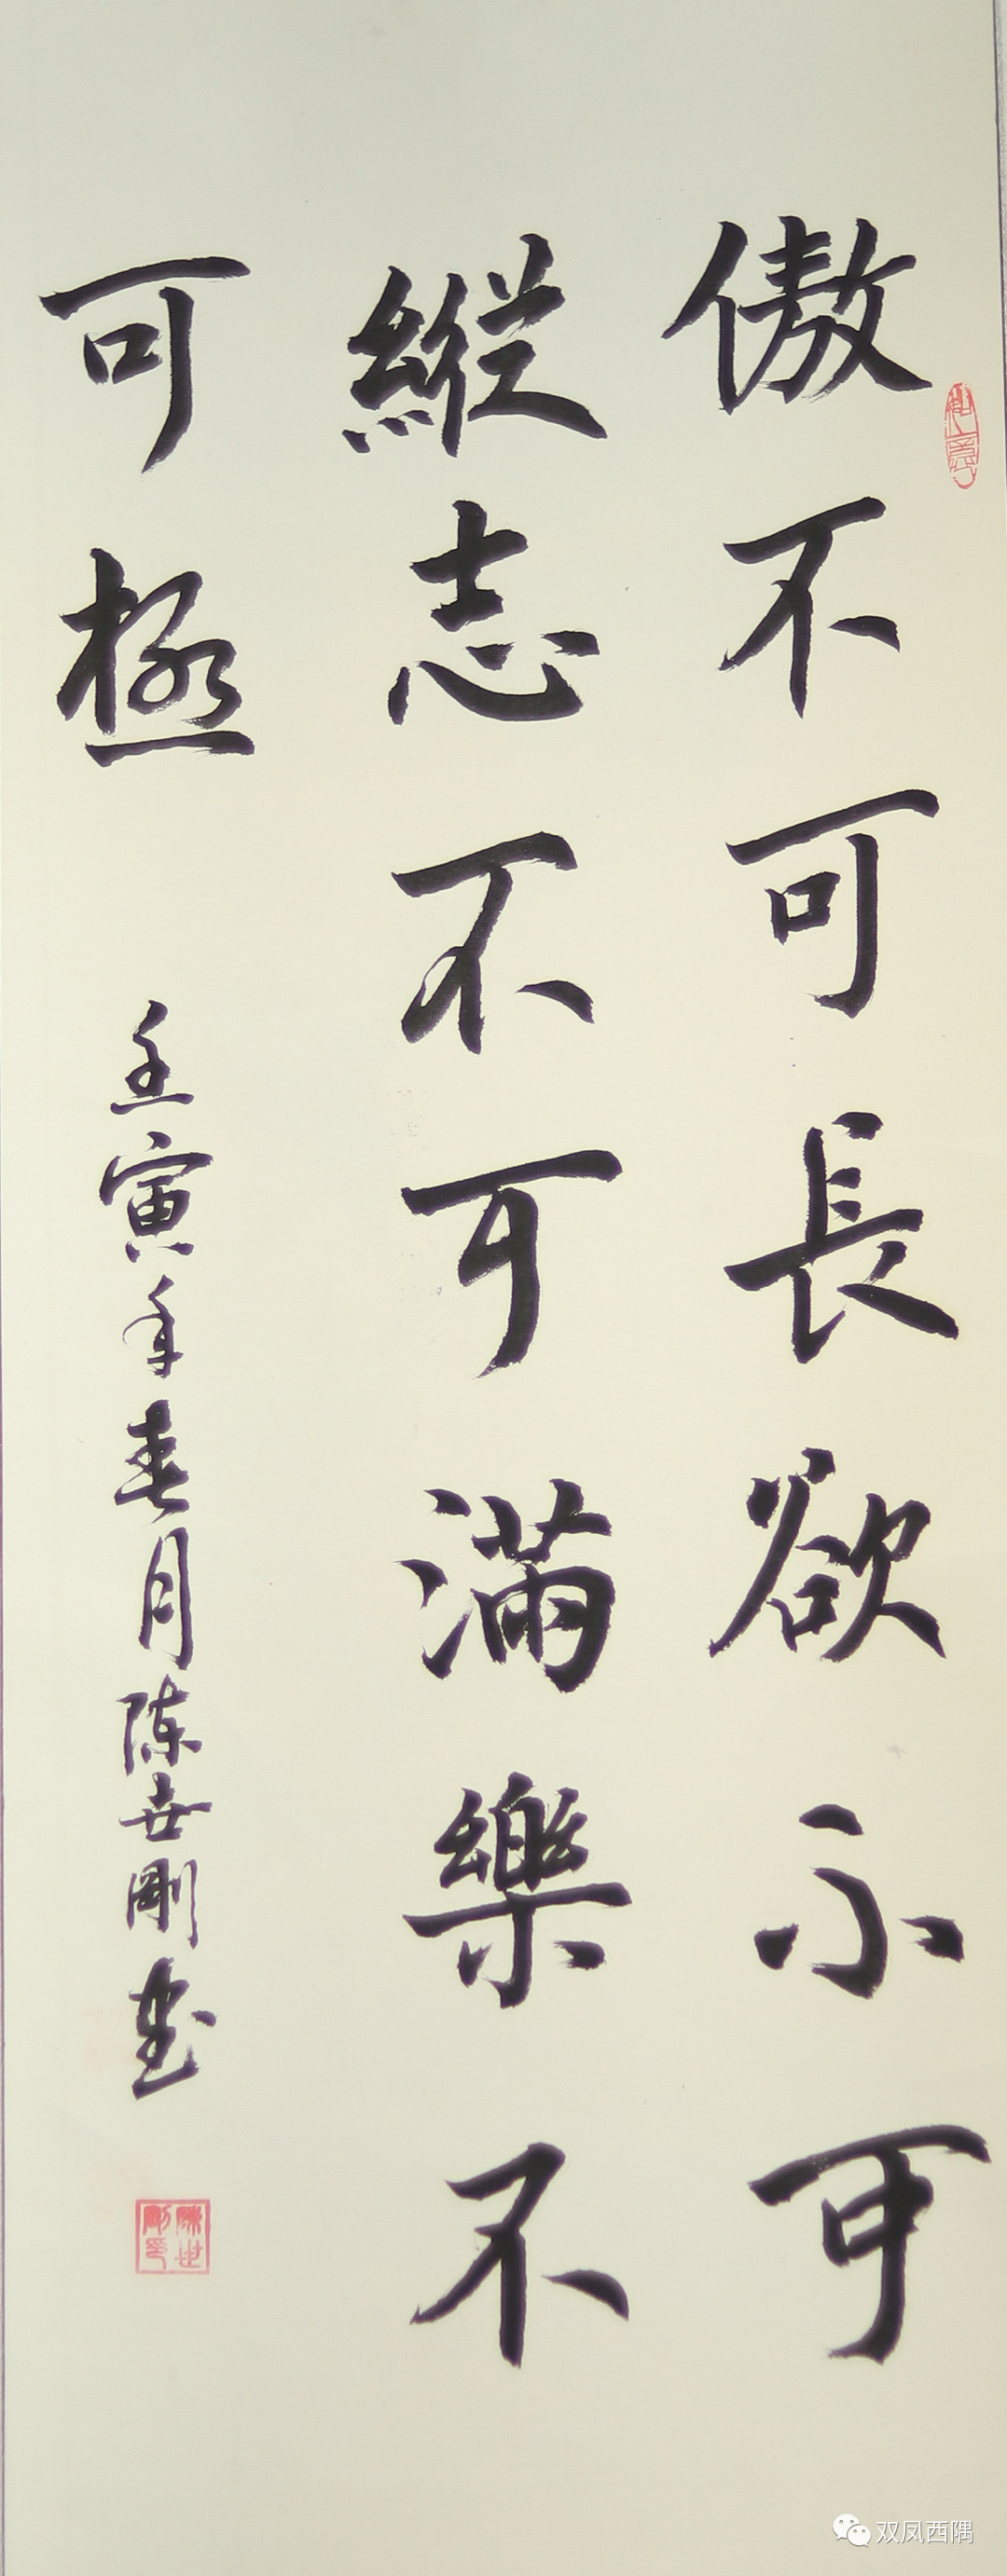 傲不可長欲不可
縱志不可滿樂不
可極
壬寅年春月陈世剛書
如意
陳世剛印
双凤西隅